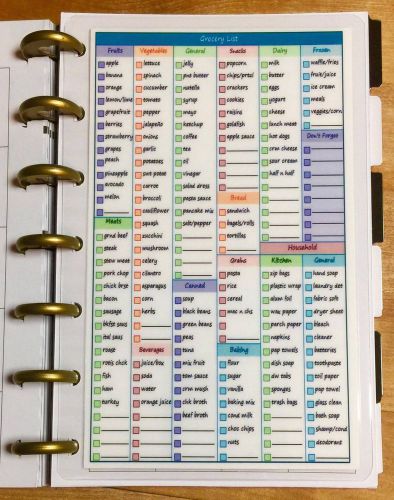 Grocery List
Fruits
apple
banana
orange
lemon/lime
grapefruit
berries
strawberry
grapes
peach
pineapple
avocado
melon
Meats
grnd beef
steak
stew meat
pork chop
chick brst
bacon
sausage
bkfst saus
ital saus
roast
rotis chck
fish
ham
turkey
Vegetables
lettuce
spinach
cucumber
tomato
pepper
jalapeño
onions
garlic
potatoes
swt potatoe
carrot
broccoli
cauliflower
squash
zucchini
mushroom
celery
cilantro
asparagus
corn
herbs
Beverages
juice/box
soda
water
orange juice
General
jelly
pnt butter
nutella
syrup
mayo
ketchup
coffee
tea
oil
vinegar
salad dress
pasta sauce
pancake mix
sugar
salt/pepper
Canned
soup
black beans
green beans
peas
tuna
mix fruit
tom sauce
corn mash
chk broth
beef broth
Snacks
popcorn
chips/pretzl
crackers
cookies
raisins
goldfish
apple sauce
Bread
sandwich
bagels/rolls
tortillas
Grains
pasta
rice
cereal
mac n chs
Baking
flour
sugar
vanilla
baking mix
cond milk
choc chips
nuts
Dairy
milk
butter
eggs
yogurt
cheese
lunch meat
hot dogs
crm cheese
sour cream
half n half
Frozen
waffle/fries
fruit/juice
ice cream
meals
veggies/corn
Don't Forget
Household
Kitchen
zip bags
plastic wrap
alum foil
wax paper
parch paper
napkins
pap towels
dish soap
dw tabs
sponges
trash bags
General
hand soap
laundry det
fabric soft
dryer sheet
bleach
cleaner
batteries
toothpaste
toil paper
pap towel
glass clean
bath soap
shamp/cond
deodorant